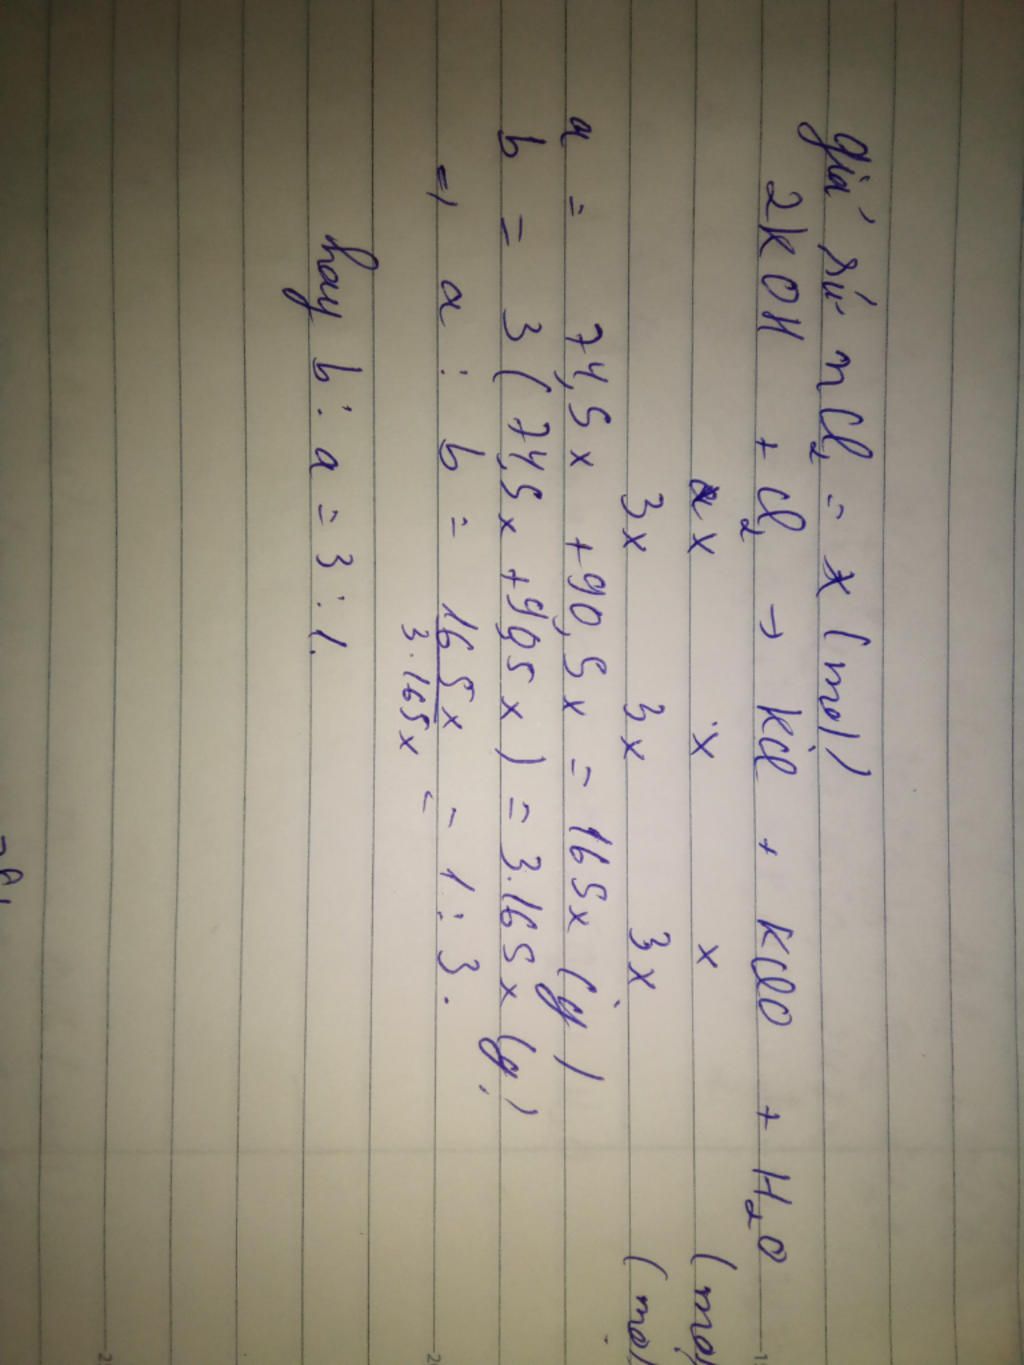 giả sử nCl₂ = x (mol)
2KOH + Cl₂ → KCl + KClO + H₂O
x x x (mol)
3x 3x 3x (mol
a = 74,5x + 90,5x = 165x (g)
b = 3 (74,5x + 90,5x) = 3.165x (g)
=> a : b = 165x / 3.165x = 1 : 3.
hay b : a = 3 : 1.